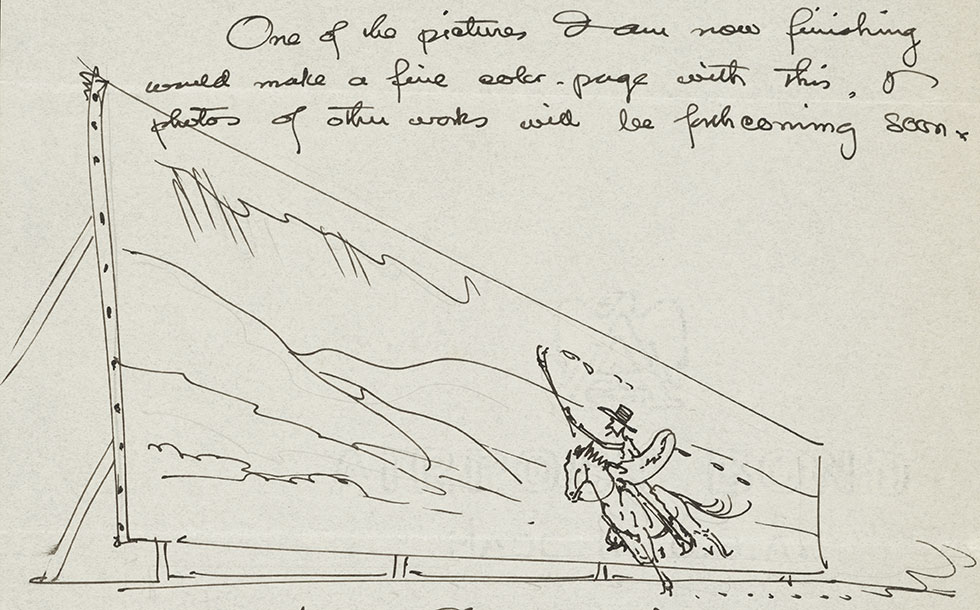 One of the pictures I am now finishing
would make a fine color-page with this, &
photos of other works will be forthcoming soon.